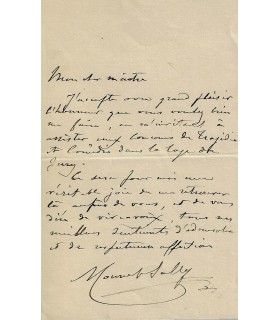 Mon cher maître
J'accepte avec grand plaisir
l'honneur que vous voulez bien
me faire, en m'invitant à
assister aux Concours de tragédie
et Comédie dans la loge du
Jury.
Ce sera pour moi une
véritable joie de me retrouver
là auprès de vous, et de vous
dire de vive voix, tous mes
meilleurs sentiments d'admiration
et de respectueuse affection
Mounet-Sully